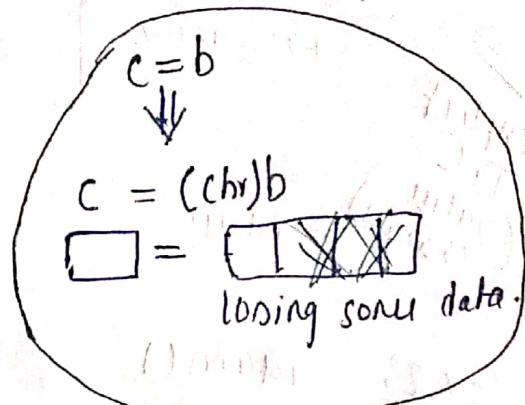 c = b
⇓
c = (chr)b
=
losing some data.